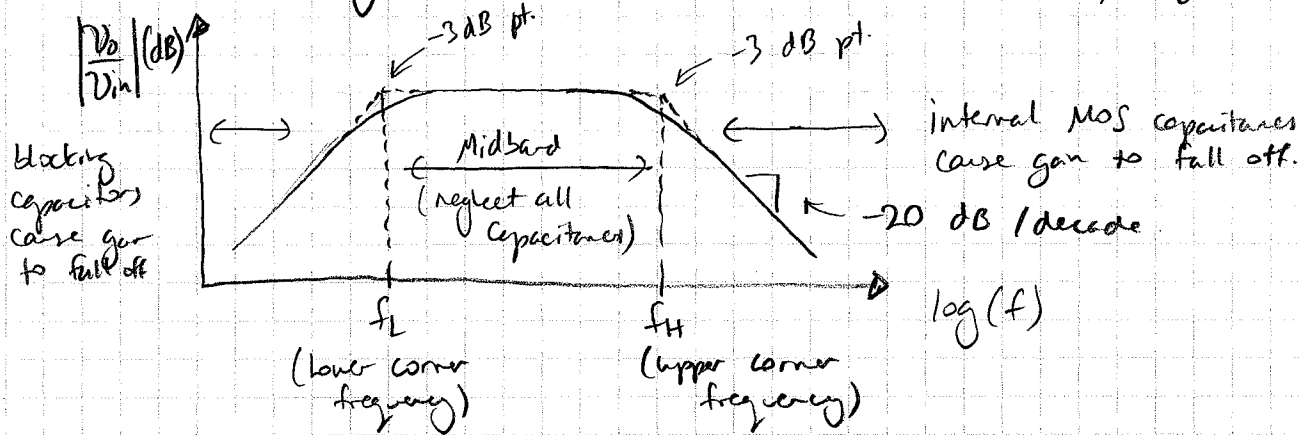 |Vo/Vin| (dB)
-3dB pt.
-3 dB pt.
blocking
capacitors
cause gain
to fall off
Midband
(neglect all
capacitances)
internal MOS capacitances
cause gain to fall off.
-20 dB /decade
log(f)
fL
(lower corner
frequency)
fH
(upper corner
frequency)